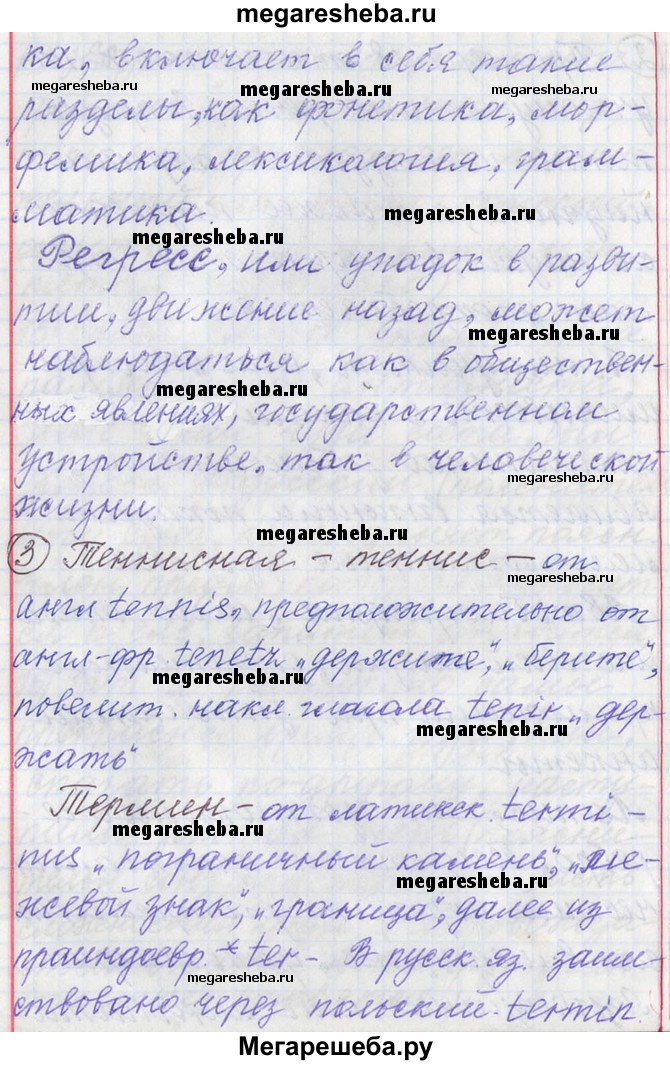 megaresheba.ru
ка, включает в себя такие
megaresheba.ru megaresheba.ru megaresheba.ru
разделы, как фонетика, мор-
фемика, лексикология, грам-
матика.
megaresheba.ru
megaresheba.ru
Регресс, или упадок в разви-
тии, движение назад, может
megaresheba.ru
наблюдаться как в обществен-
megaresheba.ru
ных явлениях, государственном
устройстве, так в человеческой
жизни.
megaresheba.ru
3 Теннисная – теннис – от
megaresheba.ru
англ tennis, предположительно от
англ-фр. tenetz „держите“, „берите“,
megaresheba.ru
повелит. накл. глагола tenir „дер-
megaresheba.ru
жать“
Термин – от латинск. termi-
megaresheba.ru
nus „пограничный камень“, „ме-
megaresheba.ru
жевой знак“, „граница“, далее из
праиндоевр. *ter- В русск. яз. заим-
megaresheba.ru
ствовано через польский termin.
Мегарешеба.ру